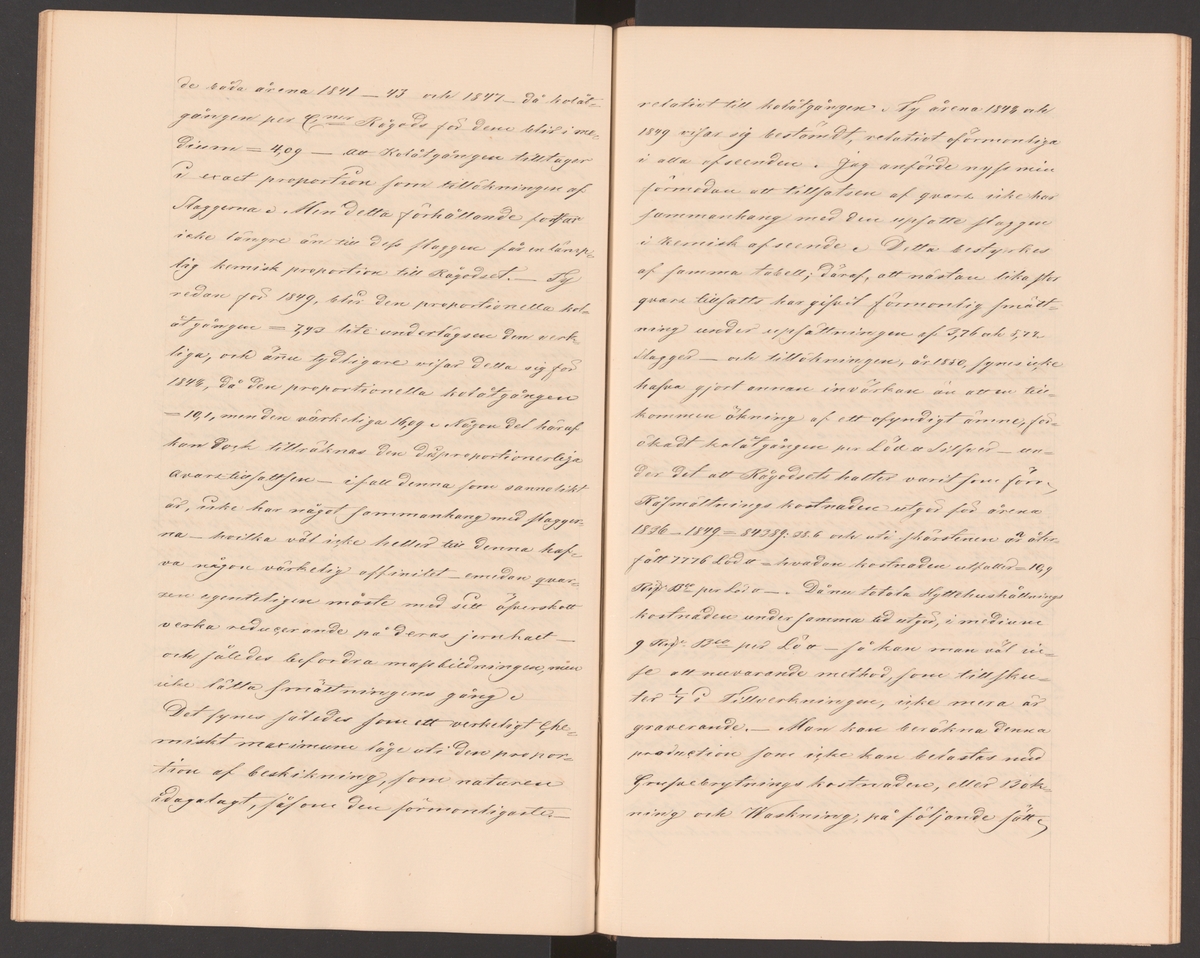 de båda årena 1841 – 43 och 1847 – då kolåt-
gången per C:ner Rågods för dem blir i me-
dium = 4,09 – att Kolåtgången tilltager
i exact proportion som tillökningen af
Slaggerna. Men detta förhållande fortfar
icke längre än till dess slaggen får en lämp-
lig kemisk proportion till Rågodset. – Ty
redan för 1849, blir den proportionella kol-
åtgången = 7,93 lite understigsen den verk-
liga, och ännu tydligare visar detta sig för
1848, då den proportionella kolåtgången
= 10,1, men den värkeliga 16,09. Någon del häraf
kan Dock tillräknas den disproportionerliga
Qvarstillsatsen – ifall denna som sannolikt
är, icke har något sammanhang med slagger-
na – hvilka väl icke heller till denna haf-
va någon värkelig affinitet – emedan qvar-
zen egenteligen måste med sitt öfverskott
verka reducerande på deras jernhalt –
och således befordra massbildningen, men
icke lätta smältningens gång.
Det synes således som ett verkeligt Che-
miskt maximum låge uti den propor-
tion af beskikning, som naturen
ådagalagt, såsom den förmonligaste –
relativt till kolåtgången. Ty årena 1848 och
1849 visar sig bestämdt, relativt oförmonliga
i alla afseenden. Jag anförde nyss min
förmodan att tillsatsen af qvarz icke har
sammanhang med den upsatte slaggen
i kemisk afseende. Detta bestyrkes
af samma tabell; däraf, att nästan lika stor
qvarz tillsatts har gifvit förmonlig smält-
ning under upsättningen af 3,76 och 5,72
Slagger – och tillökningen, år 1850, synes icke
hafva gjort annan invärkan än att en till-
kommen ökning af ett ofyndigt ämne, för-
ökadt kolåtgången per Löd. Silfver – un-
der det att Rågodsets halter varit som förr.
Råsmältnings kostnaden utgör för årena
1836 – 1849 = 84389: 38.6 och uti skärstenen är åter-
fått 7776 Löd. = hvadan kostnaden utfaller = 10,9
Rdr Bco per Löd. –. Då nu totala Hyttehushållnings
kostnaden under samma tid utgör, i medium
9 Rdr Bco per Löd. – så kan man väl in-
se att nuvarande method, som tillsku-
ter 1/7 i Tillverkningen, icke mera är
graverande. – Man kan beräkna denna
production som icke kan belastas med
Grufvebrytnings kostnaden, eller Bok-
ning och Waskning, på följande sätt.